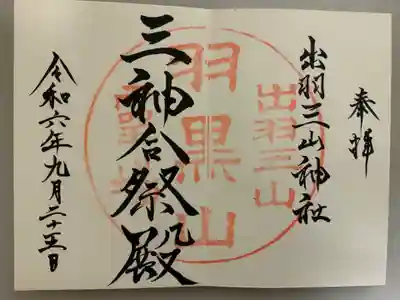 奉拝
出羽三山神社
出羽三山
羽黒山
三神合祭殿
令和六年九月二十三日